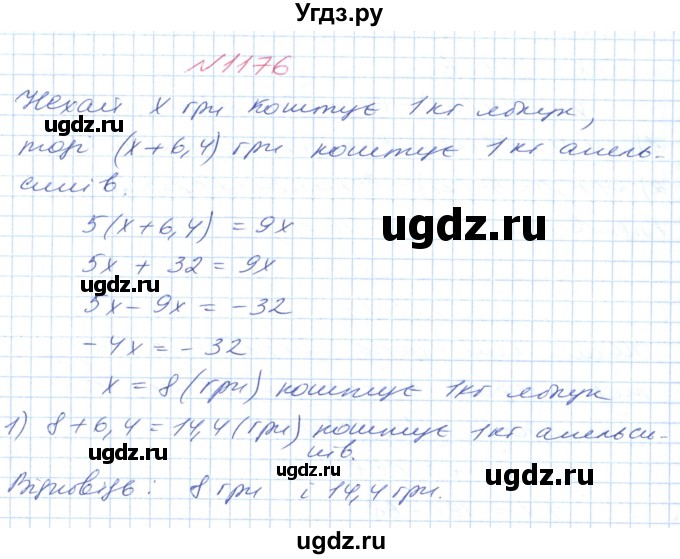 Угдз.ру
№1176
Нехай х грн коштує 1кг яблук,
ugdz.ru
тоді (х+6,4) грн коштує 1кг апель-
синів.
5(х+6,4) = 9х
ugdz.ru
5х + 32 = 9х
ugdz.ru
5х - 9х = -32
-4х = -32
ugdz.ru
х = 8 (грн) коштує 1кг яблук
1) 8+6,4=14,4(грн) коштує 1кг апельси-
нів.
ugdz.ru
ugdz.ru
ugdz.ru
Відповідь: 8 грн і 14,4 грн.
ugdz.ru
ugdz.ru